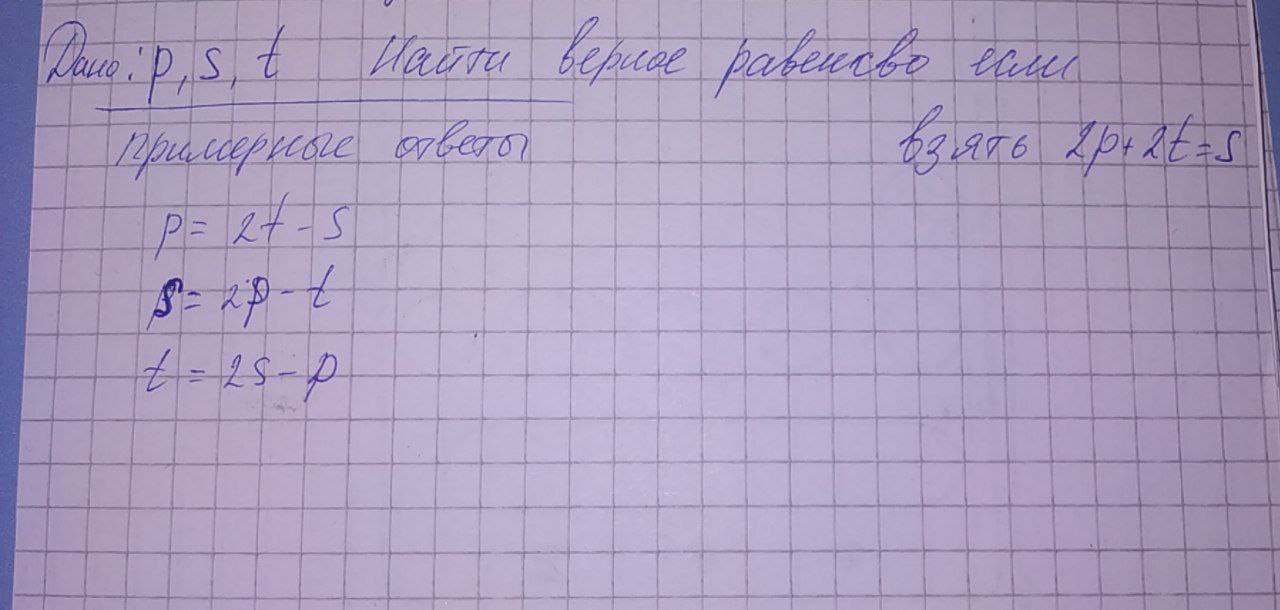 Дано: p, s, t Найти верное равенсво если
взять 2p+2t=s
примерные ответы
p= 2t-s
s= 2p-t
t = 2s-p